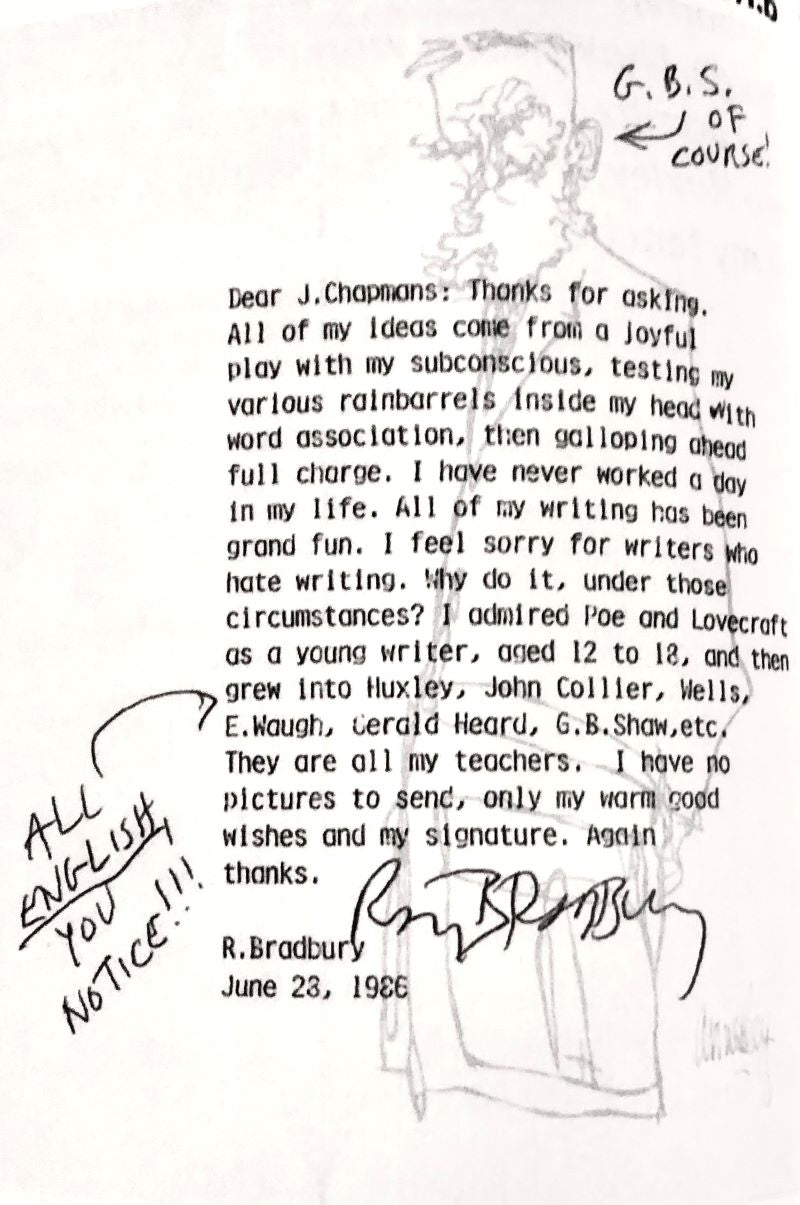 G.B.S.
OF
COURSE!
Dear J.Chapmans: Thanks for asking.
All of my ideas come from a joyful
play with my subconscious, testing my
various rainbarrels inside my head with
word association, then galloping ahead
full charge. I have never worked a day
in my life. All of my writing has been
grand fun. I feel sorry for writers who
hate writing. Why do it, under those
circumstances? I admired Poe and Lovecraft
as a young writer, aged 12 to 18, and then
grew into Huxley, John Collier, Wells,
E.Waugh, Gerald Heard, G.B.Shaw,etc.
They are all my teachers. I have no
pictures to send, only my warm good
wishes and my signature. Again
thanks.
Ray Bradbury
R.Bradbury
June 23, 1986
ALL
ENGLISH,
YOU
NOTICE!!!